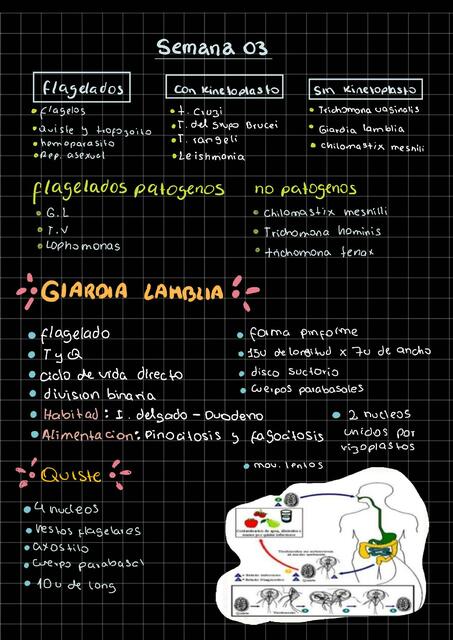 Semana 03
flagelados
• flagelos
• Quiste y trofozoito
• hemoparasito
• Rep. asexual
con kinetoplasto
• t. Cruzi
• T. del Grupo Brucei
• T. rangeli
• Leishmania
Sin kinetoplasto
• Trichomona vaginalis
• Giardia lamblia
• chilomastix mesnili
flagelados patogenos
• G.L
• T.V
• Lophomonas
no patogenos
• chilomastix mesnilli
• Trichomona hominis
• trichomona tenax
GIARDIA LAMBLIA
• flagelado
• T y Q
• ciclo de vida directo
• division binaria
• Habitad: I. delgado - Duodeno
• Alimentacion: Pinocitosis y fagocitosis
• forma piriforme
• 15u de longitud x 7u de ancho
• disco suctorio
• cuerpos parabasales
• 2 nucleos
unidos por
rizoplastos
• mov. lentos
Quiste
• 4 nucleos
• restos flagelares
• axostilo
• cuerpo parabasal
• 10u de long